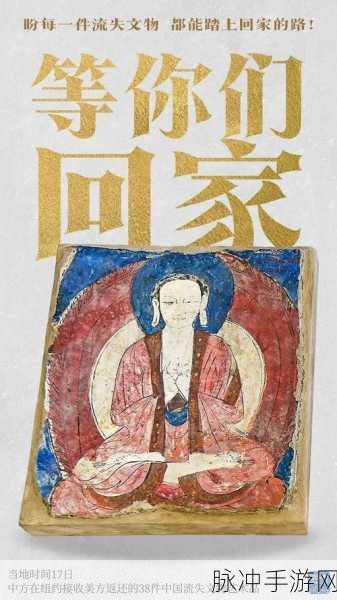 盼每一件流失文物 都能踏上回家的路！
等你们
回家
当地时间17日
中方在纽约接收美方返还的38件中国流失文
脉冲手游网